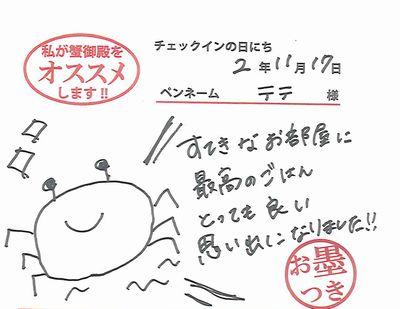 私が蟹御殿を
オススメ
します!!
チェックインの日にち
2年11月17日
ペンネーム テテ 様
すてきなお部屋に
最高のごはん
とっても良い
思い出になりました!!
お墨
つき